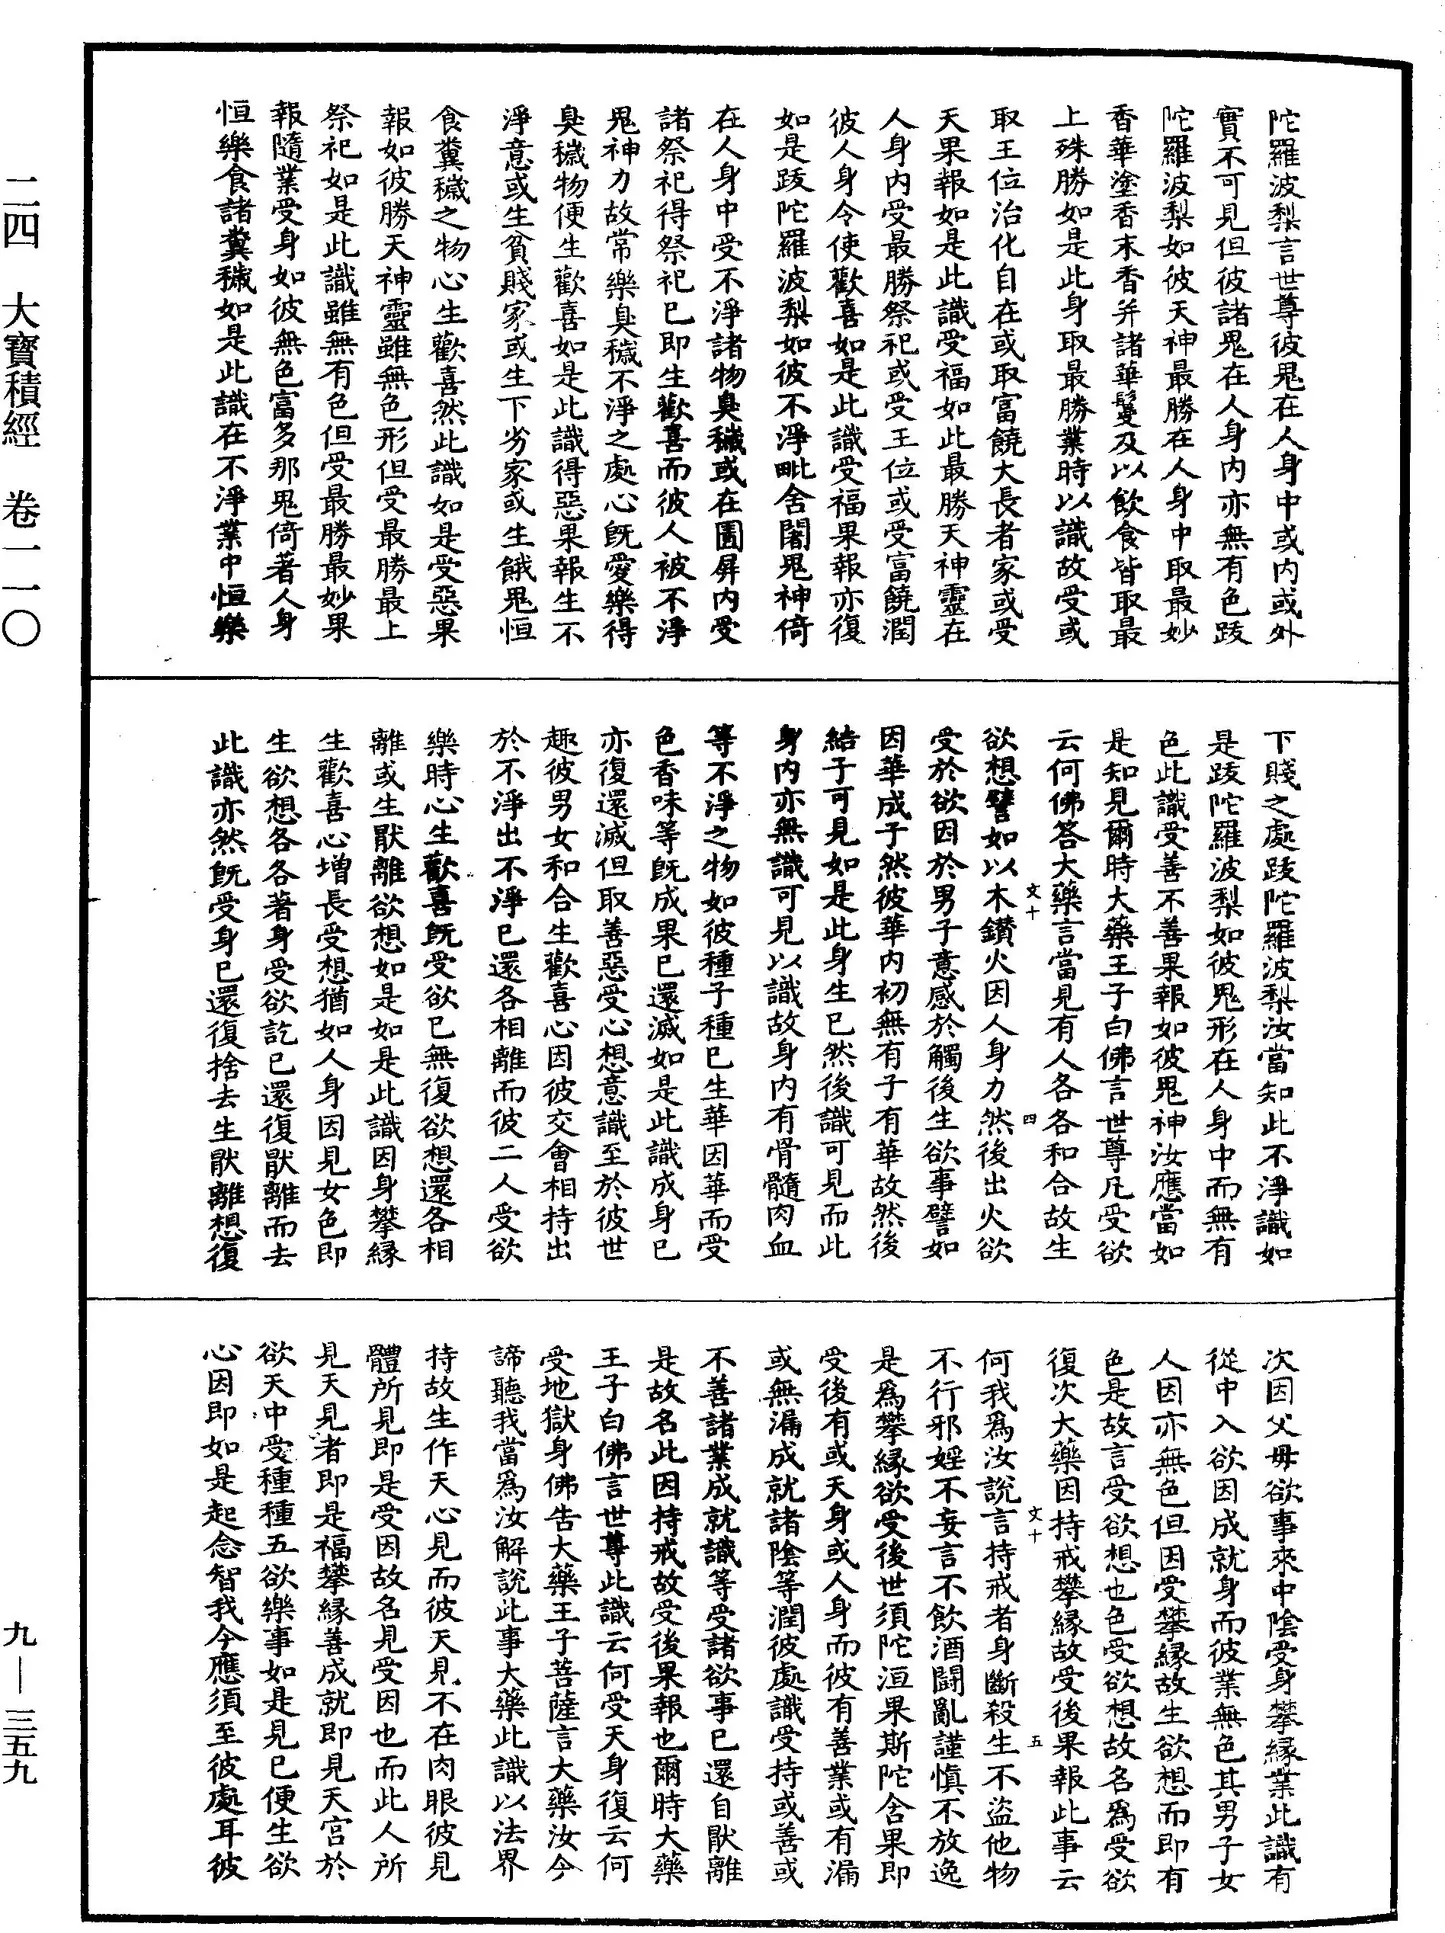 陀羅波梨言世尊彼鬼在人身中或內或外
實不可見但彼諸鬼在人身內亦無有色跋
陀羅波梨如彼天神最勝在人身中取最妙
香華塗香末香并諸華鬘及以飲食皆取最
上殊勝如是此身取最勝業時以識故受或
取王位治化自在或取富饒大長者家或受
天果報如是此識受福如此最勝天神靈在
人身內受最勝祭祀或受王位或受富饒潤
彼人身令使歡喜如是此識受福果報亦復
如是跋陀羅波梨如彼不淨毗舍闍鬼神倚
在人身中受不淨諸物臭穢或在圊屏內受
諸祭祀得祭祀已即生歡喜而彼人被不淨
鬼神力故常樂臭穢不淨之處心既愛樂得
臭穢物便生歡喜如是此識得惡果報生不
淨意或生貧賤家或生下劣家或生餓鬼恒
食糞穢之物心生歡喜然此識如是受惡果
報如彼勝天神靈雖無色形但受最勝最上
祭祀如是此識雖無有色但受最勝最妙果
報隨業受身如彼無色富多那鬼倚著人身
恒樂食諸糞穢如是此識在不淨業中恒樂
下賤之處跋陀羅波梨汝當知此不淨識如
是跋陀羅波梨如彼鬼形在人身中而無有
色此識受善不善果報如彼鬼神汝應當如
是知見爾時大藥王子白佛言世尊凡受欲
云何佛答大藥言當見有人各各和合故生
文十 四
欲想譬如以木鑽火因人身力然後出火欲
受於欲因於男子意感於觸後生欲事譬如
因華成子然彼華內初無有子有華故然後
結子可見如是此身生已然後識可見而此
身內亦無識可見以識故身內有骨髓肉血
等不淨之物如彼種子種已生華因華而受
色香味等既成果已還滅如是此識成身已
亦復還滅但取善惡受心想意識至於彼世
趣彼男女和合生歡喜心因彼交會相持出
於不淨出不淨已還各相離而彼二人受欲
樂時心生歡喜既受欲已無復欲想還各相
離或生厭離欲想如是如是此識因身攀緣
生歡喜心增長受想猶如人身因見女色即
生欲想各各著身受欲訖已還復厭離而去
此識亦然既受身已還復捨去生厭離想復
次因父母欲事來中陰受身攀緣業此識有
從中入欲因成就身而彼業無色其男子女
人因亦無色但因受攀緣故生欲想而即有
色是故言受欲想也色受欲想故名為受欲
復次大藥因持戒攀緣故受後果報此事云
文十 五
何我為汝說言持戒者身斷殺生不盜他物
不行邪婬不妄言不飲酒鬪亂謹慎不放逸
是為攀緣欲受後世須陀洹果斯陀含果即
受後有或天身或人身而彼有善業或有漏
或無漏成就諸陰等潤彼處識受持或善或
不善諸業成就識等受諸欲事已還自厭離
是故名此因持戒故受後果報也爾時大藥
王子白佛言世尊此識云何受天身復云何
受地獄身佛告大藥王子菩薩言大藥汝今
諦聽我當為汝解說此事大藥此識以法界
持故生作天心見而彼天見不在肉眼彼見
體所見即是受因故名見受因也而此人所
見天見者即是福攀緣善成就即見天宮於
欲天中受種種五欲樂事如是見已便生欲
心因即如是起念智我今應須至彼處耳彼
二四 大寶積經 卷一一〇
九—三五九